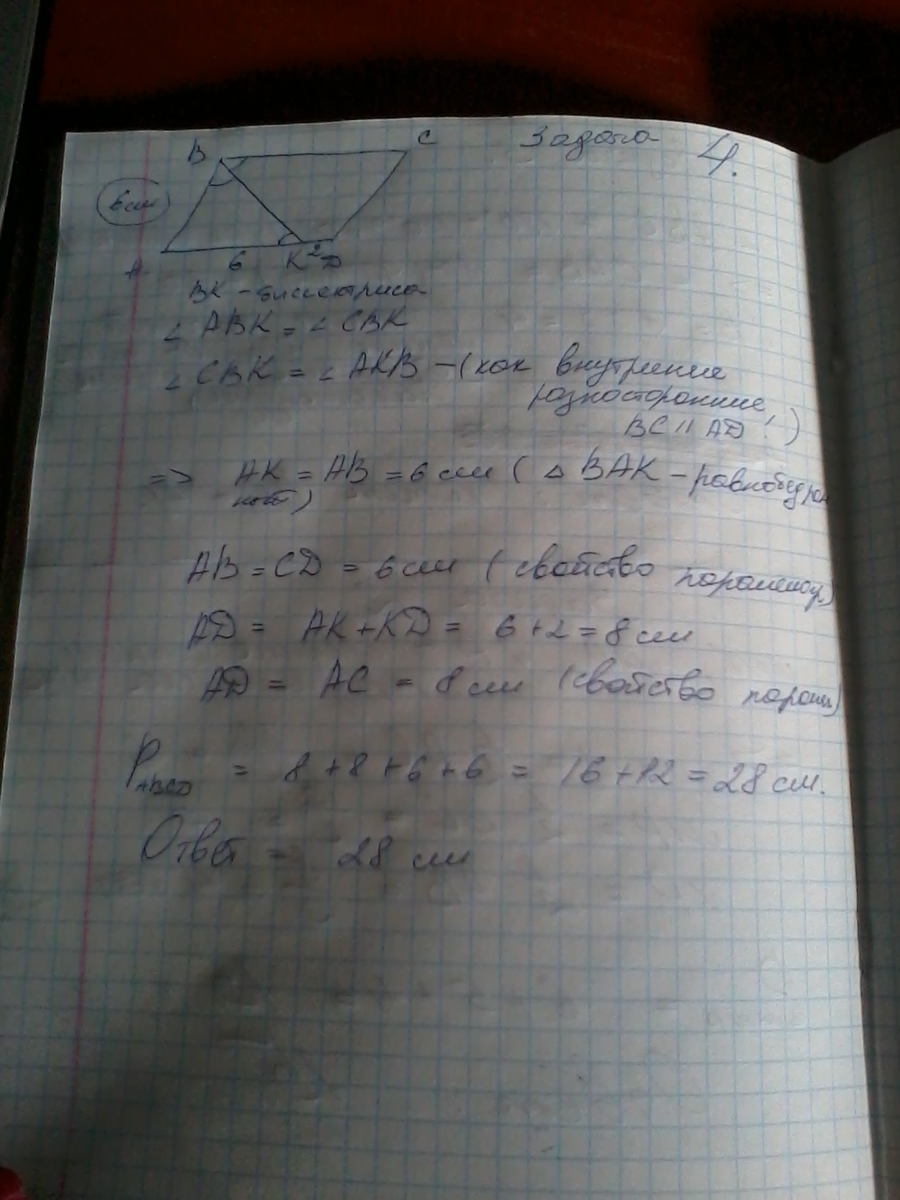 B C Задача 4.
6 см
A 6 K 2 D
BK - биссектриса
∠ ABK = ∠ CBK
∠ CBK = ∠ AKB - (как внутрение
разносторонние,
BC || AD !)
=> AK = AB = 6 см ( △ BAK - равнобедрен
ный)
AB = CD = 6 см ( свойство
AD = AK + KD = 6 + 2 = 8 см
AD = AC = 8 см (свойство
P ABCD = 8 + 8 + 6 + 6 = 16 + 12 = 28 см.
Ответ = 28 см